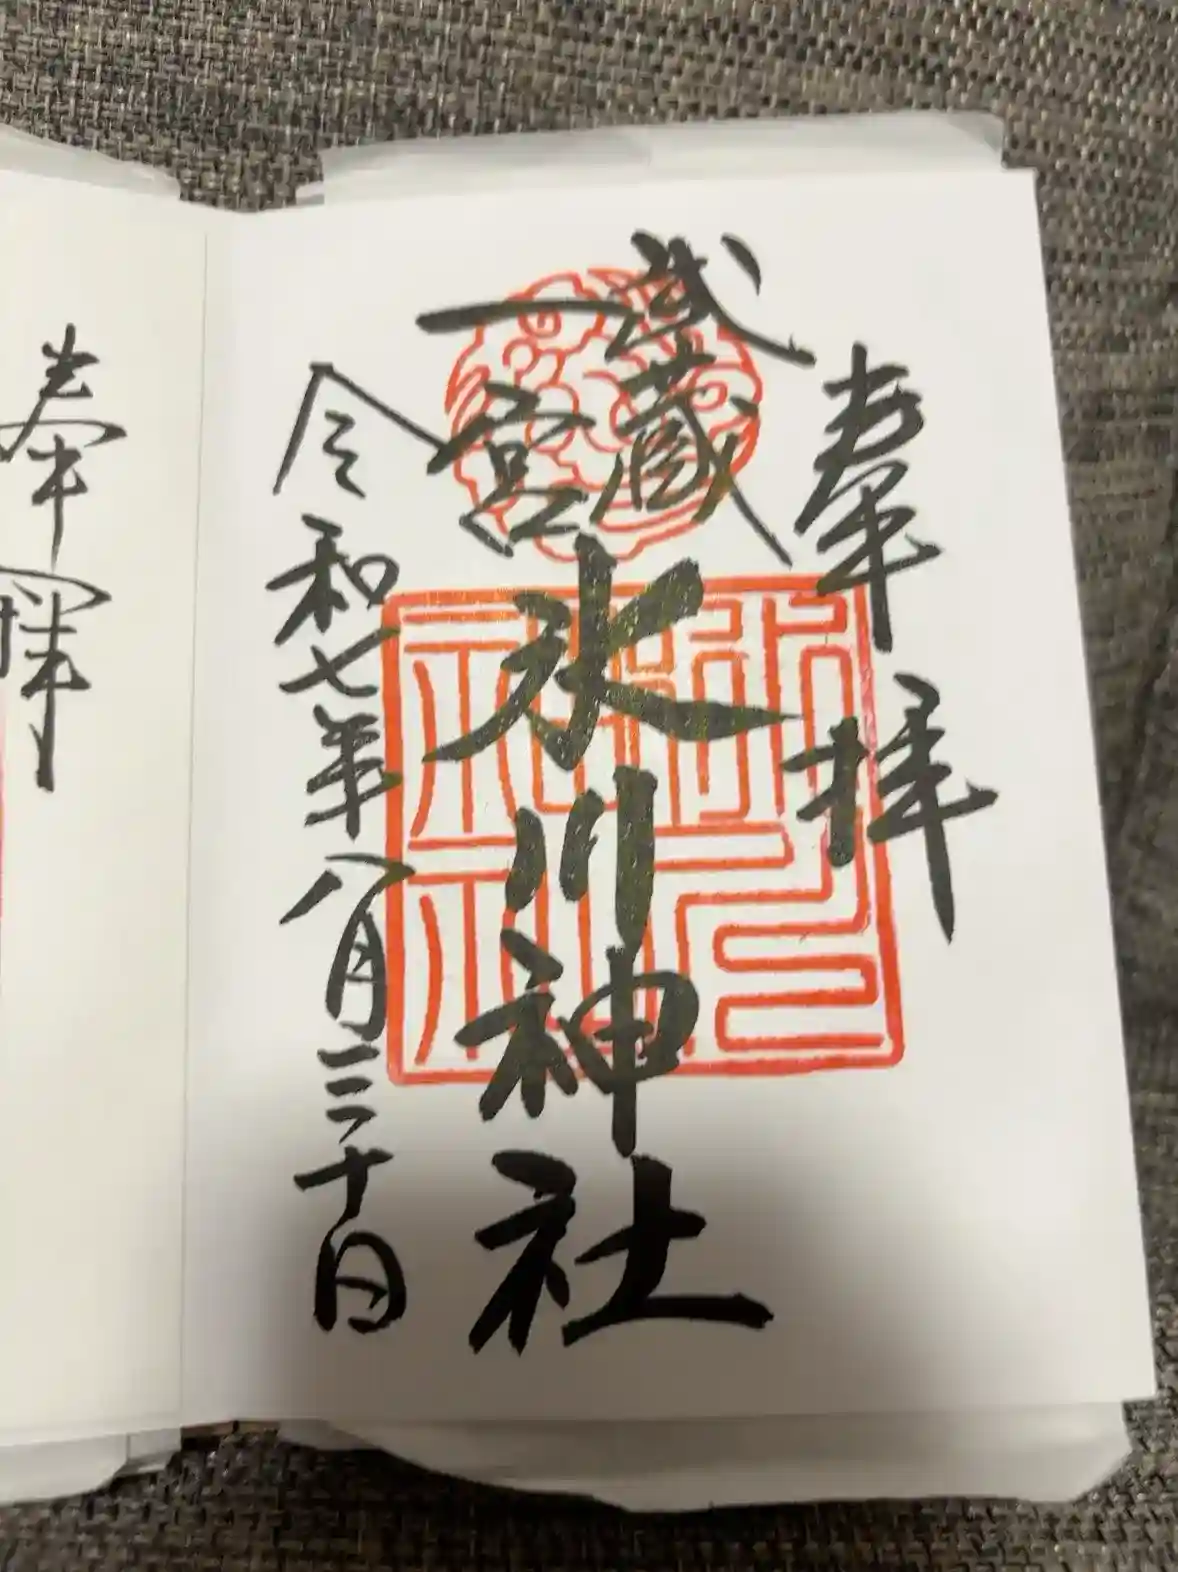 奉拝
武蔵
一宮
氷川神社
令和七年八月三十日
奉拝